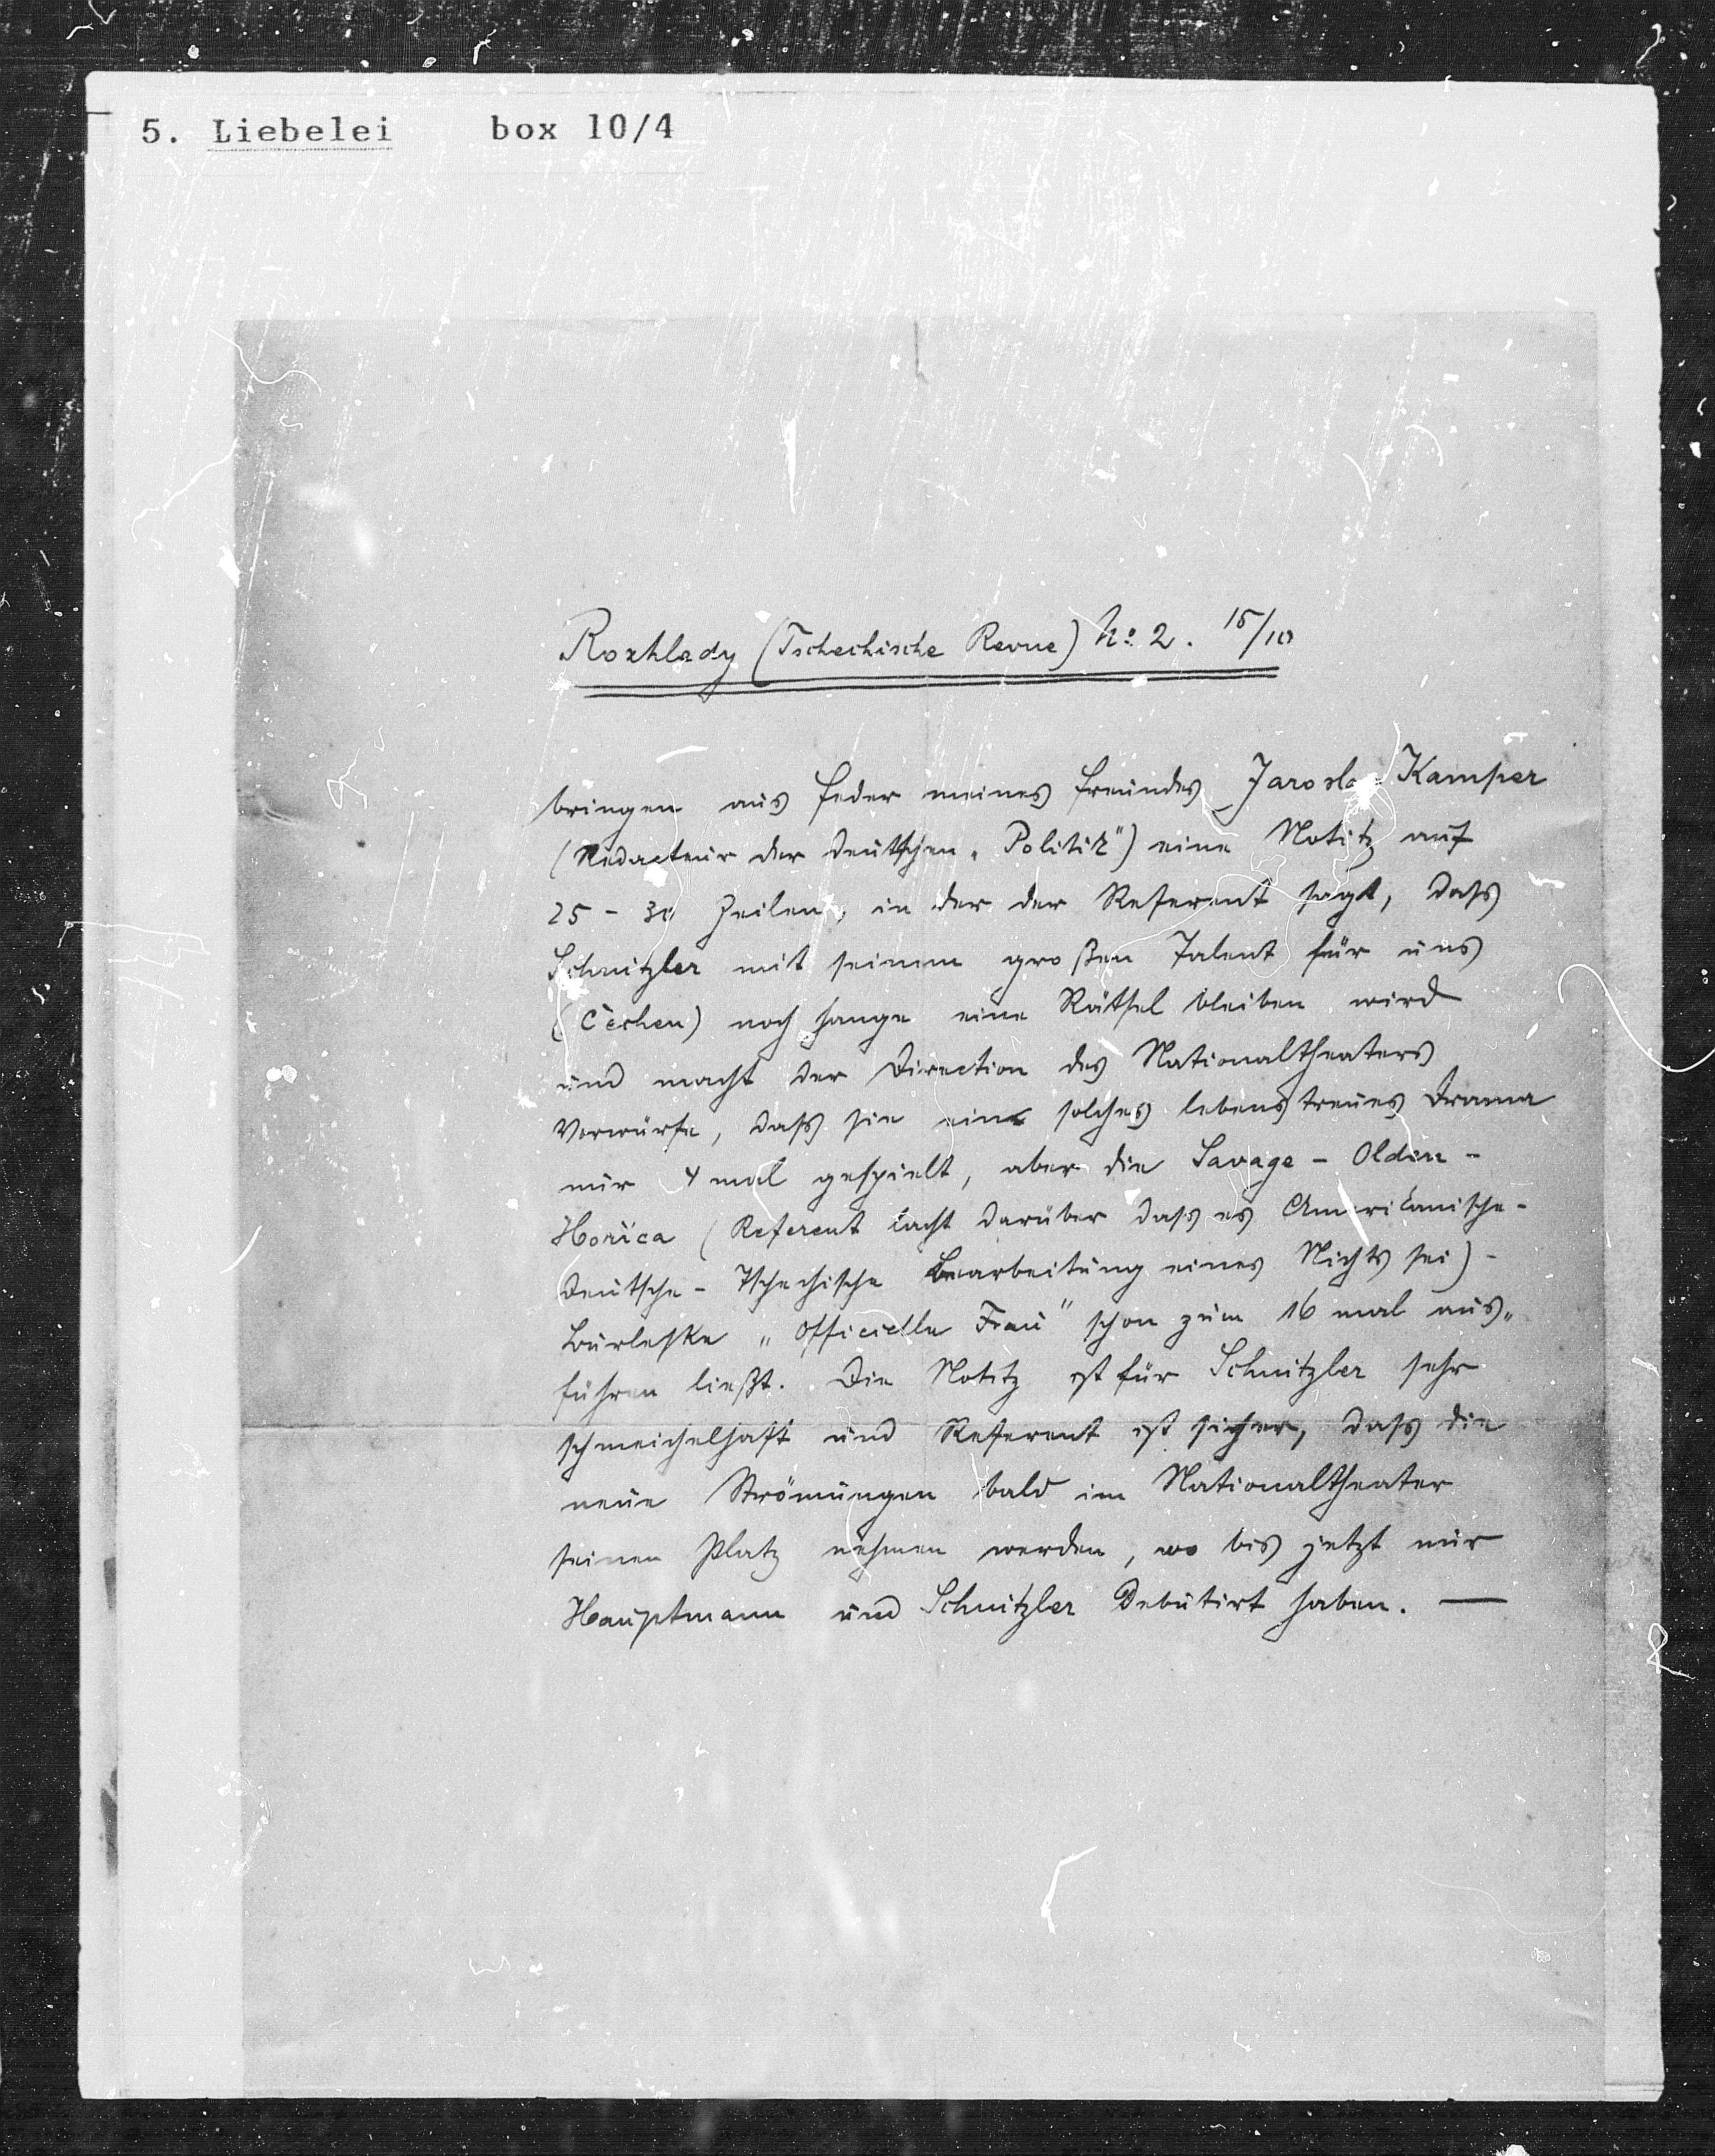 5. Liebelei box 10/4
Rozhlady (Tschechische Revue) No 2. 15/10
bringen aus Feder meines Freundes Jaroslav Kamper
(Redacteur der deutschen „Politik“) eine Notitz auf
25 - 30 Zeilen, in der der Referent sagt, dass
Schnitzler mit seinem großen Talent für uns
(Čechen) noch lange eine Räthsel bleiben wird
und macht der Direction des Nationaltheaters
Vorwürfe, dass sie ein solches lebenstreues Drama
nur 4 mal gespielt, aber die Savage - Olden -
Hořica (Referent lacht darüber dass es Amerikanische-
Deutsche - Tschechische Bearbeitung eines Nichts sei) -
Burleske „Officielle Frau“ schon zum 16 mal aus„
führen ließt. Die Notitz ist für Schnitzler sehr
schmeichelhaft und Referent ist sicher, dass die
neue Strömungen bald im Nationaltheater
seinen Platz nehmen werden, wo bis jetzt nur
Hauptmann und Schnitzler Debutirt haben. —